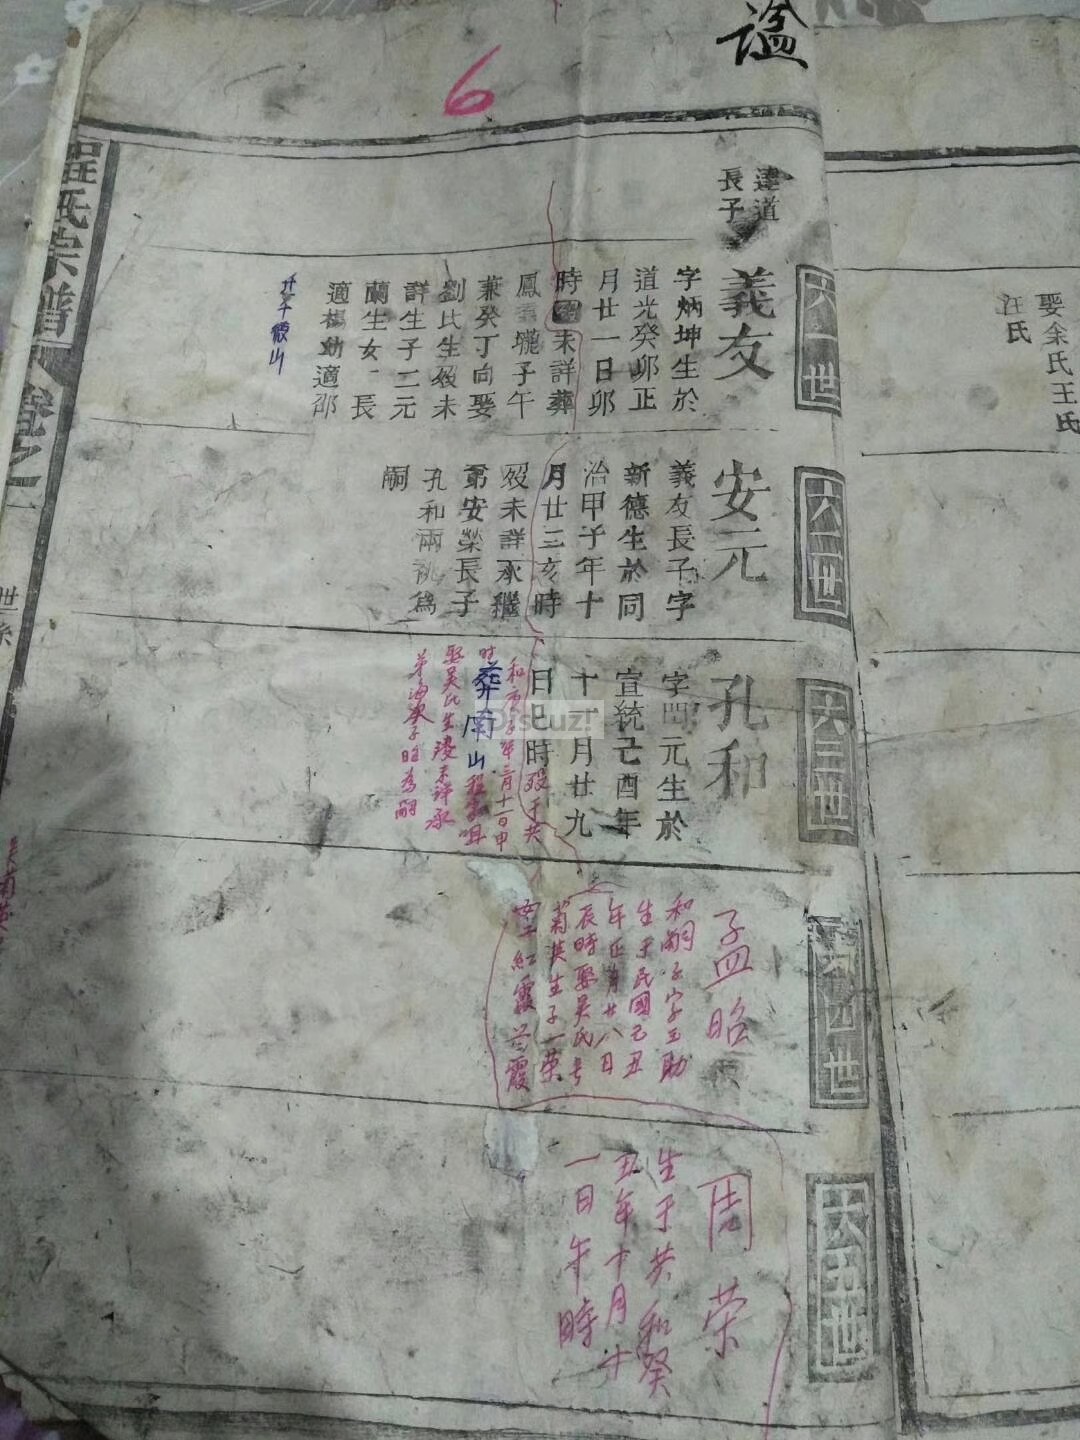 谥
6
程氏宗譜
卷之一
世系
六一世
達道
長子
義友
字炳坤生於
道光癸卯正
月廿一日卯
時 未詳葬
鳳 壠子午
兼癸丁向娶
劉氏生歿未
詳生子二元
蘭生女一長
適楊幼適邵
六二世
安元
義友長子字
新德生於同
治甲子年十
月廿三亥時
歿未詳承繼
弟安榮長子
孔和兩祧爲
嗣
六三世
孔和
字酉元生於
宣統己酉年
十一月廿九
日巳時殁于共
和庚子年三月十一日申
时葬南山程家咀
娶吴氏生殁未詳承
弟海 子昭为嗣
六四世
孟昭
和嗣子字玉助
生于民國己丑
年正月廿八日
辰時娶吴氏
菊英生子一荣
女二紅霞 霞
六五世
周荣
生于共和癸
丑年十月十
一日午時
娶余氏王氏
汪氏
Discuz!